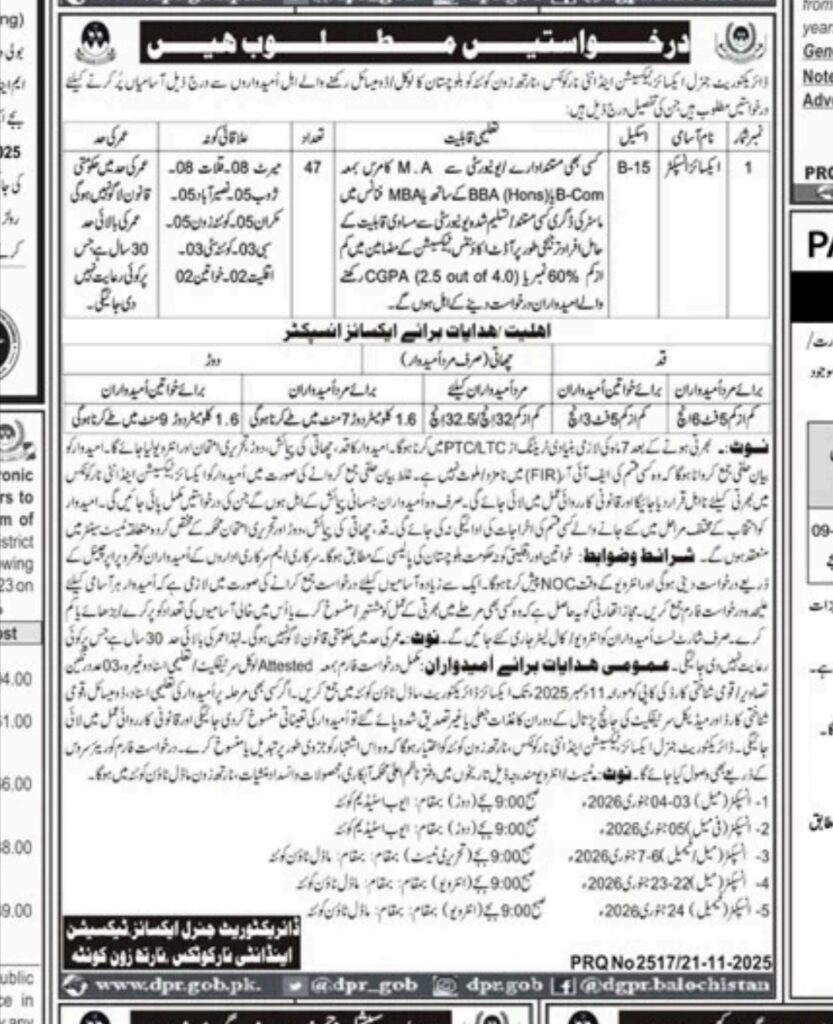 درخواستیں مطلوب ہیں
ڈائریکٹوریٹ جنرل ایکسائز ٹیکسیشن اینڈ اینٹی نارکوٹکس، نارتھ زون کوئٹہ کو بلوچستان کا لوکل/ڈومیسائل رکھنے والے اہل اُمیدواروں سے درج ذیل آسامیاں پُر کرنے کیلئے
درخواستیں مطلوب ہیں جن کی تفصیل درج ذیل ہیں:
نمبر شمار نام آسامی اسکیل تعلیمی قابلیت تعداد علاقائی کوٹہ عمر کی حد
1 ایکسائز انسپکٹر B-15 کسی بھی مستند ادارے/یونیورسٹی سے M.A کامرس بمعہ 47 میرٹ 08۔ قلات 08۔ عمر کی حد میں حکومتی
B-Com یا BBA (Hons) کے ساتھ یا MBA فنانس میں ژوب 05۔ نصیرآباد 05۔ قانون لاگو نہیں ہوگی
ماسٹر کی ڈگری کسی مستند/تسلیم شدہ یونیورسٹی سے مساوی قابلیت کے مکران 05۔ کوئٹہ زون 05۔ عمر کی بالائی حد
حامل افراد ترجیحی طور پر آڈٹ اکاؤنٹس ٹیکسیشن کے مضامین میں کم سبی 03۔ کوئٹہ سٹی 03۔ 30 سال ہے جس
از کم 60% نمبر یا CGPA (2.5 out of 4.0) رکھنے اقلیت 02۔ خواتین 02 پر کوئی رعایت نہیں
والے امیدواران درخواست دینے کے اہل ہوں گے۔ دی جائیگی۔
اہلیت/ہدایات برائے ایکسائز انسپکٹر
قد چھاتی (صرف مرد اُمیدوار) دوڑ
برائے مرد اُمیدواران برائے خواتین اُمیدواران مرد اُمیدواران کیلئے برائے مرد اُمیدواران برائے خواتین اُمیدواران
کم از کم 5 فٹ 6 انچ کم از کم 5 فٹ 3 انچ کم از کم 32 انچ/32.5 انچ 1.6 کلومیٹر دوڑ 7 منٹ میں طے کرنا ہوگی 1.6 کلومیٹر دوڑ 9 منٹ میں طے کرنا ہوگی
نوٹ:۔ بھرتی ہونے کے بعد 7 ماہ کی لازمی بنیادی ٹریننگ از PTC/LTC میں کرنا ہوگا۔ امیدوار کا قد، چھاتی کی پیمائش، دوڑ، تحریری امتحان اور انٹرویو لیا جائے گا۔ امیدوار کو
بیان حلفی جمع کروانا ہوگا کہ وہ کسی قسم کی ایف آئی آر (FIR) میں نامزد/ملوث نہیں ہے۔ غلط بیان حلفی جمع کروانے کی صورت میں اُمیدوار کو ایکسائز ٹیکسیشن اینڈ اینٹی نارکوٹکس
میں بھرتی کیلئے نااہل قرار دیا جائیگا اور قانونی کارروائی عمل میں لائی جائے گی۔ صرف وہ امیدواران جسمانی پیمائش کے اہل ہوں گے جن کی درخواستیں مکمل پائی جائیں گی۔ امیدوار
کو انتخاب کے مختلف مراحل میں کئے جانے والے کسی قسم کی اخراجات کی ادائیگی نہ کی جائے گی۔ قد، چھاتی کی پیمائش، دوڑ اور تحریری امتحان محکمہ کے مختص کردہ متعلقہ ٹیسٹ سینٹر میں
منعقد ہوں گے۔ شرائط وضوابط: خواتین اور اقلیتی کوٹہ حکومت بلوچستان کی پالیسی کے مطابق ہوگا۔ سرکاری/نیم سرکاری اداروں کے اُمیدواران کو پراپر چینل کے
ذریعے درخواست دینی ہوگی اور انٹرویو کے وقت NOC پیش کرنا ہوگا۔ ایک سے زیادہ آسامیوں کیلئے درخواست جمع کرانے کی صورت میں لازمی ہے کہ اُمیدوار ہر آسامی کیلئے
علیحدہ درخواست فارم جمع کریں۔ مجاز اتھارٹی کو یہ حاصل ہے کہ وہ کسی بھی مرحلے میں بھرتی کے عمل کو مشتہر/منسوخ کرے یا اس میں خالی آسامیوں کی تعداد کو پُر کرے/بڑھائے یا کم
کرے۔ صرف شارٹ لسٹ اُمیدواران کو انٹرویو/کال لیٹر جاری کئے جائیں گے۔ نوٹ:۔ عمر کی حد میں حکومتی قانون لاگو نہیں ہوگی۔ لہٰذا عمر کی بالائی حد 30 سال ہے جس پر کوئی
رعایت نہیں دی جائیگی۔ عمومی ہدایات برائے اُمیدواران: مکمل درخواست فارم بمعہ Attested لوکل سرٹیفکیٹ/تعلیمی اسناد وغیرہ، 03 عدد رنگین
تصاویر/قومی شناختی کارڈ کی کاپی کو مورخہ 11 دسمبر 2025 تک ایکسائز ڈائریکٹوریٹ ماڈل ٹاؤن کوئٹہ میں جمع کریں۔ اگر کسی بھی مرحلہ پر اُمیدوار کی تعلیمی اسناد، ڈومیسائل، قومی
شناختی کارڈ اور میڈیکل سرٹیفکیٹ کی جانچ پڑتال کے دوران کاغذات جعلی یا غیر تصدیق شدہ پائے گئے تو اُمیدوار کی تعیناتی منسوخ کردی جائیگی اور قانونی کارروائی عمل میں لائی
جائیگی۔ ڈائریکٹوریٹ جنرل ایکسائز ٹیکسیشن اینڈ اینٹی نارکوٹکس، نارتھ زون کوئٹہ کو اختیار ہوگا کہ وہ اس اشتہار کو جزوی طور پر تبدیل یا منسوخ کرے۔ درخواست فارم کوریئر سروس
کے ذریعے بھی وصول کیا جائے گا۔ نوٹ:۔ ٹیسٹ/انٹرویو مندرجہ ذیل تاریخوں میں دفتر ناظم اعلیٰ محکمہ آبکاری، محصولات و انسداد منشیات، نارتھ زون ماڈل ٹاؤن کوئٹہ میں ہوگا۔
1- انسپکٹر (میل) 03-04 جنوری 2026ء صبح 9:00 بجے (دوڑ) بمقام: ایوب اسٹیڈیم کوئٹہ
2- انسپکٹر (فی میل) 05 جنوری 2026ء صبح 9:00 بجے (دوڑ) بمقام: ایوب اسٹیڈیم کوئٹہ
3- انسپکٹر (میل/فیمیل) 6-7 جنوری 2026ء صبح 9:00 بجے (تحریری ٹیسٹ) بمقام: بمقام: ماڈل ٹاؤن کوئٹہ
4- انسپکٹر (میل) 22-23 جنوری 2026ء صبح 9:00 بجے (انٹرویو) بمقام: بمقام: ماڈل ٹاؤن کوئٹہ
5- انسپکٹر (فیمیل) 24 جنوری 2026ء صبح 9:00 بجے (انٹرویو) بمقام: بمقام: ماڈل ٹاؤن کوئٹہ
ڈائریکٹوریٹ جنرل ایکسائز ٹیکسیشن
اینڈ انٹی نارکوٹکس، نارتھ زون کوئٹہ
PRQ No 2517/21-11-2025
www.dpr.gob.pk. @dpr_gob dpr.gob @dgpr.balochistan